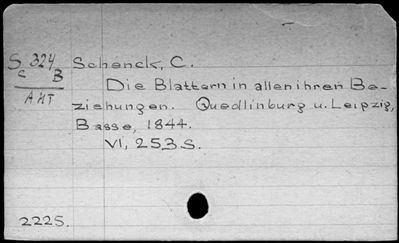 S 324 Schenck, C.
S B
AHT
Die Blattern in allen ihren Be-
ziehungen. Quedlinburg u. Leipzig,
Basse, 1844.
VI, 253 S.
2225.